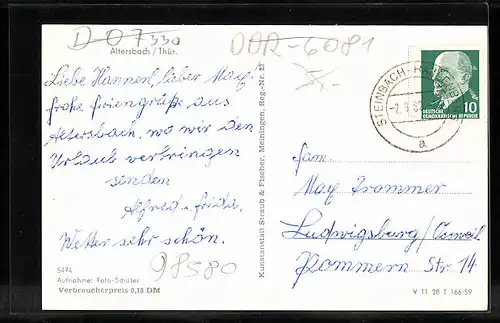 D-07330
DDR-6081
Altersbach / Thür.
Liebe Hannerl, lieber Max,
frohe Feriengrüße aus
Altersbach, wo wir den
Urlaub verbringen
senden
Alfred u. Frida.
Wetter sehr schön.
98580
5474
Aufnahme: Foto-Schüler
Verbraucherpreis 0,15 DM
Kunstanstalt Straub & Fischer, Meiningen, Reg.-Nr. 23
STEINBACH-
a
10
DEUTSCHE
DEMOKRATISCHE REPUBLIK
Fam.
Max Trommer
Ludwigsburg/
Pommern Str. 14
V 11 28 F 166/59